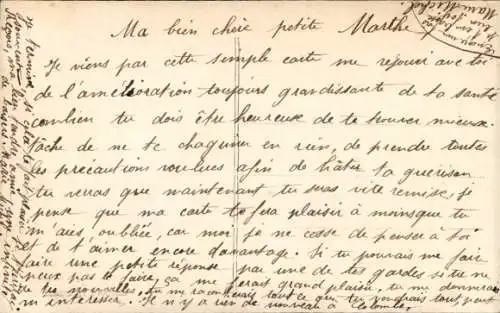 Ma bien chère petite Marthe
Je viens par cette simple carte me rejouir avec toi
de l'amélioration toujours grandissante de ta santé
combien tu dois être heureuse de te trouver mieux.
tâche de ne te chagriner en rien, de prendre toutes
les précautions voulues afin de hâter ta guérison
tu verras que maintenant tu seras vite remise, je
pense que ma carte te fera plaisir à moins que tu
m'aies oubliée, car moi je ne cesse de penser à toi
et de t'aimer encore davantage. Si tu pouvais me faire
faire une petite réponse par une de tes gardes si tu ne
peux pas le faire, ça me ferait grand plaisir, tu me donnerais
de tes nouvelles, tu me raconterais tout ce que tu voudrais tout peut
m'intéresser. Il n'y a rien de nouveau à Colombe.
Je termine
Reçois, ma
Marie Michel.